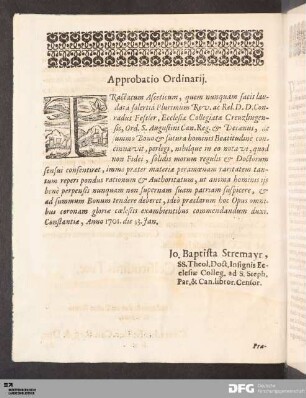 Approbatio Ordinarij.
TRactatum Asceticum, quem nunquam satis lau-
data solertia Plurimùm Rev. ac Rel. D. D. Con-
radus Festler, Ecclesiæ Collegiatæ Creuzlingen-
sis, Ord. S. Augustini Can. Reg. & Decanus, ut
summo Bono & futura hominis Beatitudine con-
cinnavit, perlegi, nihilque in eo notavi, quod
non Fidei, solidis morum regulis & Doctorum
sensui consentiret, imò præter materiæ peramœnam raritatem tan-
tum reperi pondus rationum & Authoritatum, ut anima hominis iis
benè perpensis nunquam non supernam suam patriam suspicere, &
ad summum Bonum tendere debeat, ideò præclarum hoc Opus omni-
bus coronam gloriæ cælestis exambientibus commendandum duxi.
Constantiæ, Anno 1701. die 13. Jan.
Jo. Baptista Stremayr,
SS. Theol. Doct. Insignis Ec-
clesiæ Colleg. ad S. Steph.
Par. & Can. libror. Censor.
Præ-
DFG Deutsche
Forschungsgemeinschaft